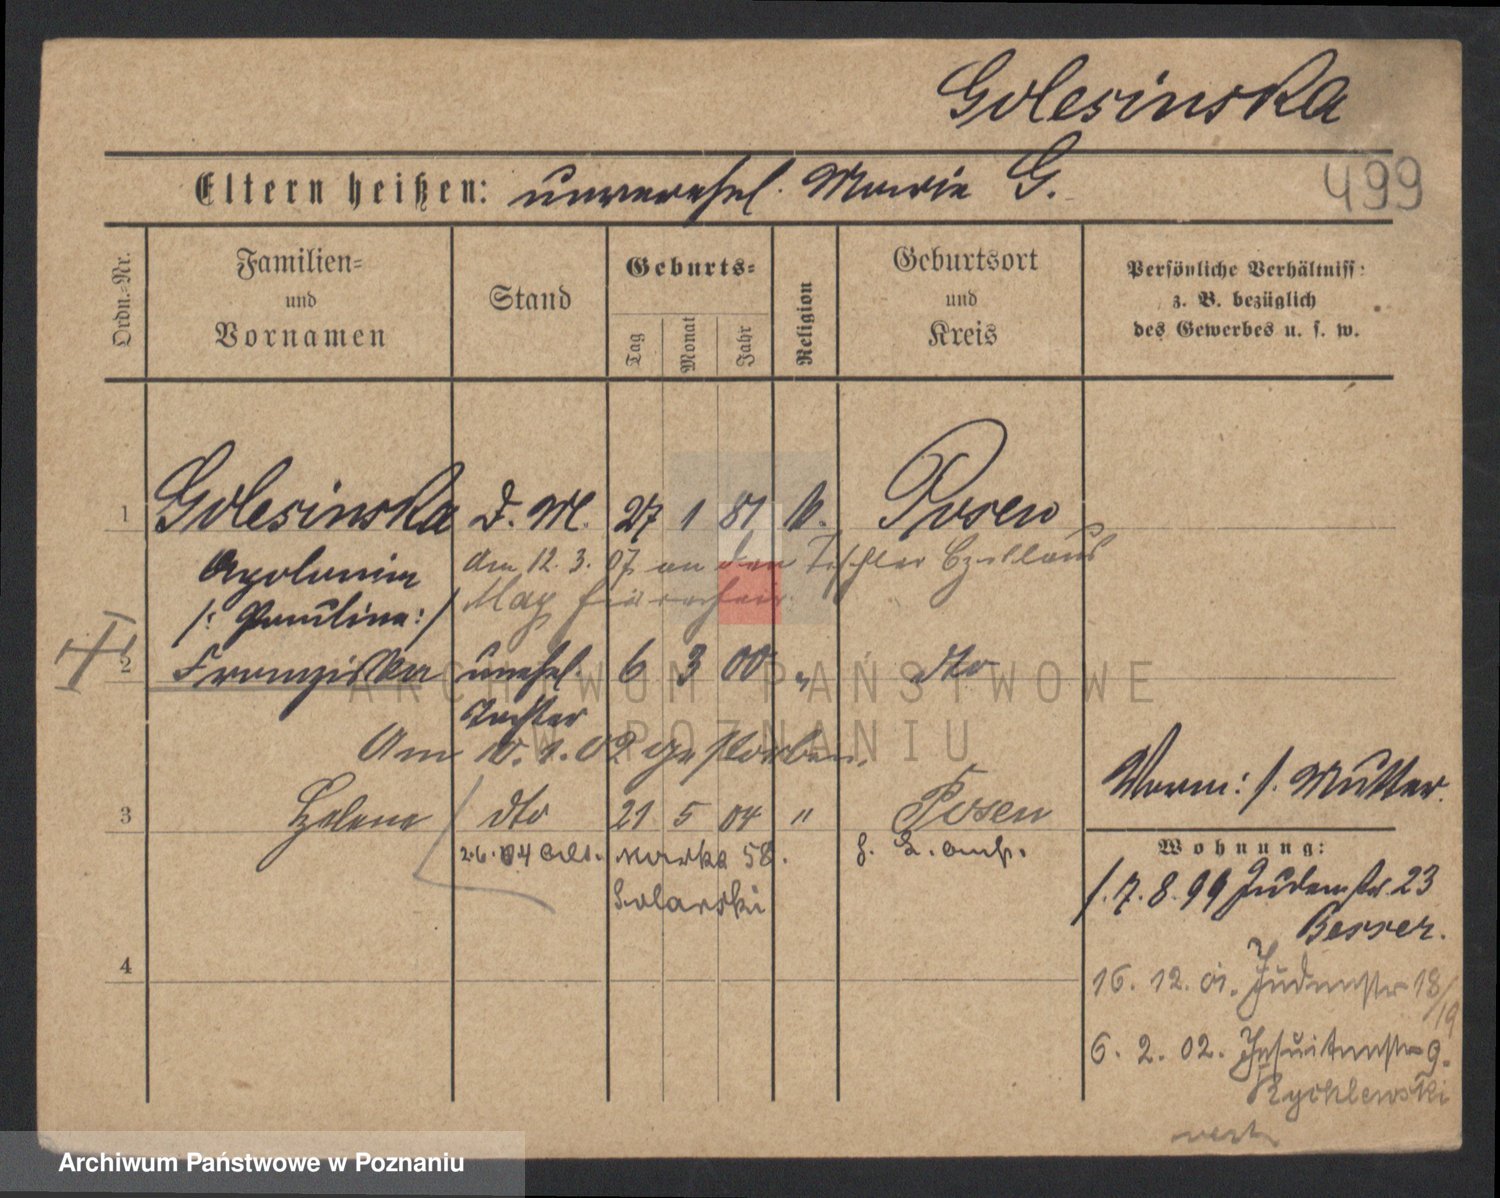 Golesinska
Eltern heißen: unverehel. Marie G.
499
Ordn.=Nr.
Familien=
und
Vornamen
Stand
Geburts=
Tag
Monat
Jahr
Religion
Geburtsort
und
Kreis
Persönliche Verhältniss:
z. B. bezüglich
des Gewerbes u. s. w.
1 Golesinska D. M. 27 1 81 k. Posen
Apolonia am 12. 3. 07 an den Tischler
/: Paulina :/
2 Franziska unehel. 6 3 00 " dto
Tochter
Am 10. 1. 02 gestorben.
3 Helene dto 21 5 04 " Posen
2.6.04
58.
Solarski
4
Vorm: s. Mutter.
Wohnung:
7. 8. 99 Judenstr. 23
Besser.
16. 12. 01. Judenstr 18/19
6. 2. 02. Jesuitenstr 9.
Rychlewski
ARCHIWUM PAŃSTWOWE
W POZNANIU
Archiwum Państwowe w Poznaniu